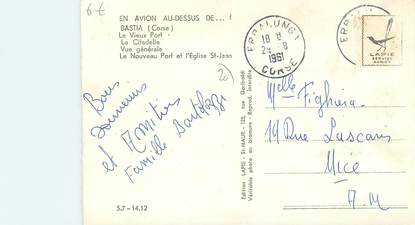 6 €
EN AVION AU-DESSUS DE... !
BASTIA (Corse)
Le Vieux Port -
La Citadelle
Vue générale
Le Nouveau Port et l'Eglise St-Jean
20
Bons
souvenirs
et Amitiés
Famille
5.7 - 14.12
Edition LAPIE - St-MAUR - 125, rue Garibaldi
Véritable photo au bromure - Reprod. interdite
ERBALUNGA
18 H
1961
CORSE
LAPIE
SERVICE
AERIEN
Melle Fighiera
14 Rue Lascaris
Nice
A. M